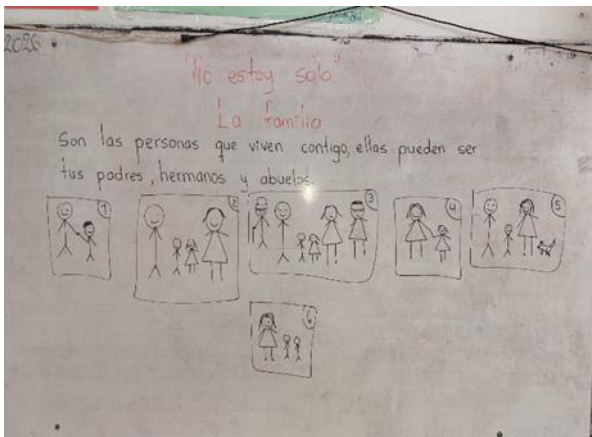 2026
"No estoy solo"
La familia
Son las personas que viven contigo, ellas pueden ser
tus padres, hermanos y abuelos.
1
2
3
4
5
6